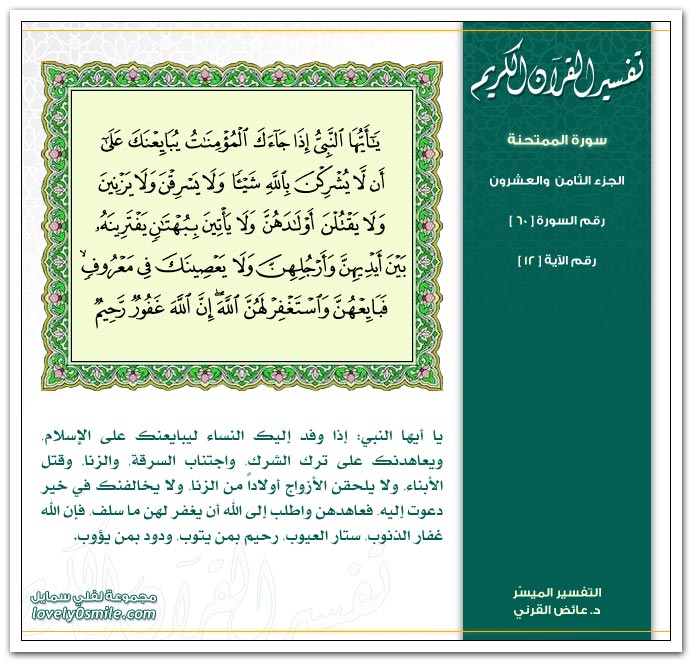 تفسير القرآن الكريم
سورة الممتحنة
الجزء الثامن والعشرون
رقم السورة [ ٦٠ ]
رقم الآية [ ١٢ ]
يَٰٓأَيُّهَا ٱلنَّبِيُّ إِذَا جَآءَكَ ٱلْمُؤْمِنَٰتُ يُبَايِعْنَكَ عَلَىٰٓ
أَن لَّا يُشْرِكْنَ بِٱللَّهِ شَيْـًٔا وَلَا يَسْرِقْنَ وَلَا يَزْنِينَ
وَلَا يَقْتُلْنَ أَوْلَٰدَهُنَّ وَلَا يَأْتِينَ بِبُهْتَٰنٍ يَفْتَرِينَهُۥ
بَيْنَ أَيْدِيهِنَّ وَأَرْجُلِهِنَّ وَلَا يَعْصِينَكَ فِي مَعْرُوفٍ ۙ
فَبَايِعْهُنَّ وَٱسْتَغْفِرْ لَهُنَّ ٱللَّهَ ۖ إِنَّ ٱللَّهَ غَفُورٌ رَّحِيمٌ
يا أيها النبي: إذا وفد إليك النساء ليبايعنك على الإسلام،
ويعاهدنك على ترك الشرك، واجتناب السرقة، والزنا، وقتل
الأبناء، ولا يلحقن الأزواج أولاداً من الزنا، ولا يخالفنك في خير
دعوت إليه، فعاهدهن واطلب إلى الله أن يغفر لهن ما سلف، فإن الله
غفار الذنوب، ستار العيوب، رحيم بمن يتوب، ودود بمن يؤوب.
تفسير القرآن الكريم
التفسير الميسّر
د. عائض القرني
مجموعة لفلي سمايل
lovely0smile.com